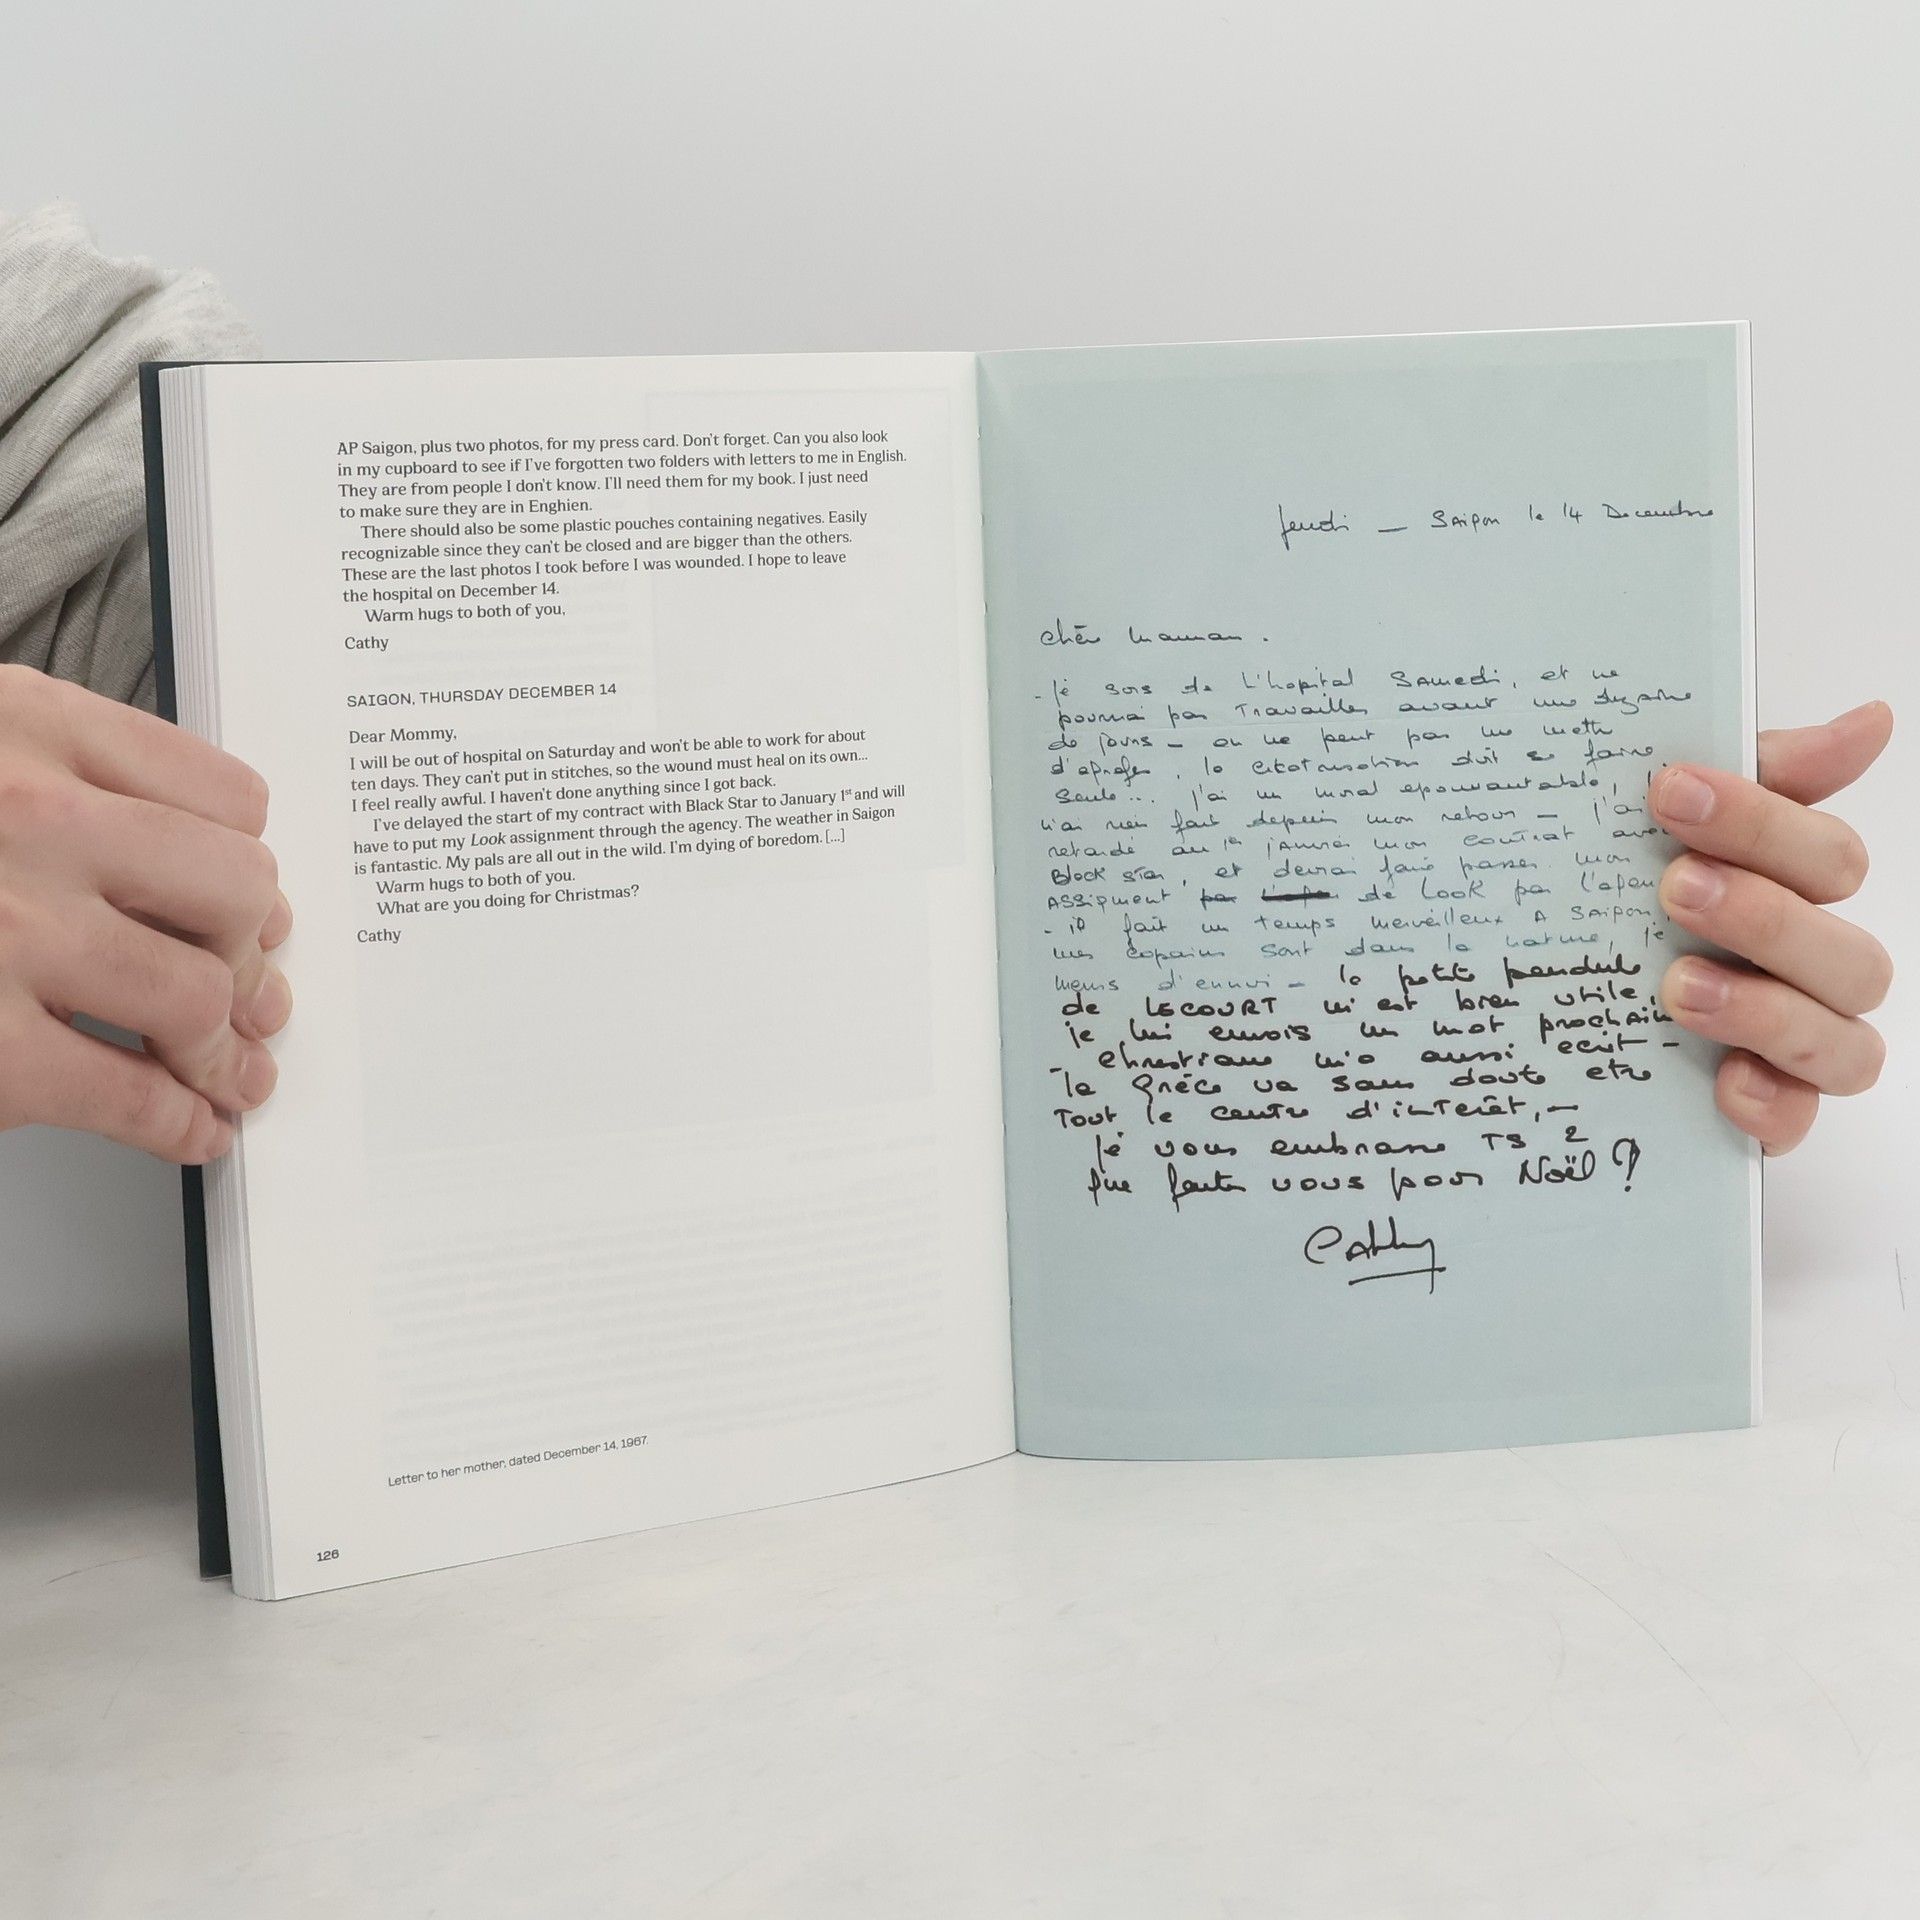 AP Saigon, plus two photos, for my press card. Don't forget. Can you also look
in my cupboard to see if I've forgotten two folders with letters to me in English.
They are from people I don't know. I'll need them for my book. I just need
to make sure they are in Enghien.
There should also be some plastic pouches containing negatives. Easily
recognizable since they can't be closed and are bigger than the others.
These are the last photos I took before I was wounded. I hope to leave
the hospital on December 14.
Warm hugs to both of you,
Cathy
SAIGON, THURSDAY DECEMBER 14
Dear Mommy,
I will be out of hospital on Saturday and won't be able to work for about
ten days. They can't put in stitches, so the wound must heal on its own...
I feel really awful. I haven't done anything since I got back.
I've delayed the start of my contract with Black Star to January 1st and will
have to put my Look assignment through the agency. The weather in Saigon
is fantastic. My pals are all out in the wild. I'm dying of boredom. [...]
Warm hugs to both of you.
What are you doing for Christmas?
Cathy
Letter to her mother, dated December 14, 1967.
126
Jeudi — Saigon le 14 Decembre
chère maman.
- je sors de L'hopital Samedi, et ne
pourrai pas Travailler avant une dizaine
de jours — on ne peut pas me mettre
d'agrafes, la cicatrisation doit se faire
seule... j'ai un moral epouvantable,
n'ai rien fait depuis mon retour — j'ai
retardé au 1er janvier mon contrat avec
Black Star, et devrai faire passer mon
ASSignment par de Look par l'agen
- il fait un temps merveilleux A SAIgon,
mes copains sont dans la nature, je
meurs d'ennui — la petite pendule
de LECOURT m'est bien utile,
je lui envois un mot prochain
- christiane m'a aussi ecrit —
la Grèce va sans doute etre
Tout le centre d'intérêt, —
je vous embrasse TS 2
que faites vous pour Noël ?
Cathy